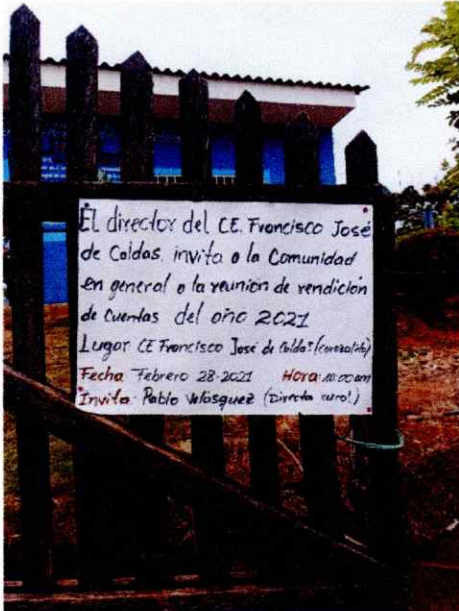 El director del CE. Francisco José
de Caldas, invita a la Comunidad
en general a la reunión de rendición
de Cuentas del año 2021
Lugar CE Francisco José de Caldas (corozalito)
Fecha Febrero 28-2021 Hora: 10:00 am
Invita: Pablo Velásquez (Director rural)